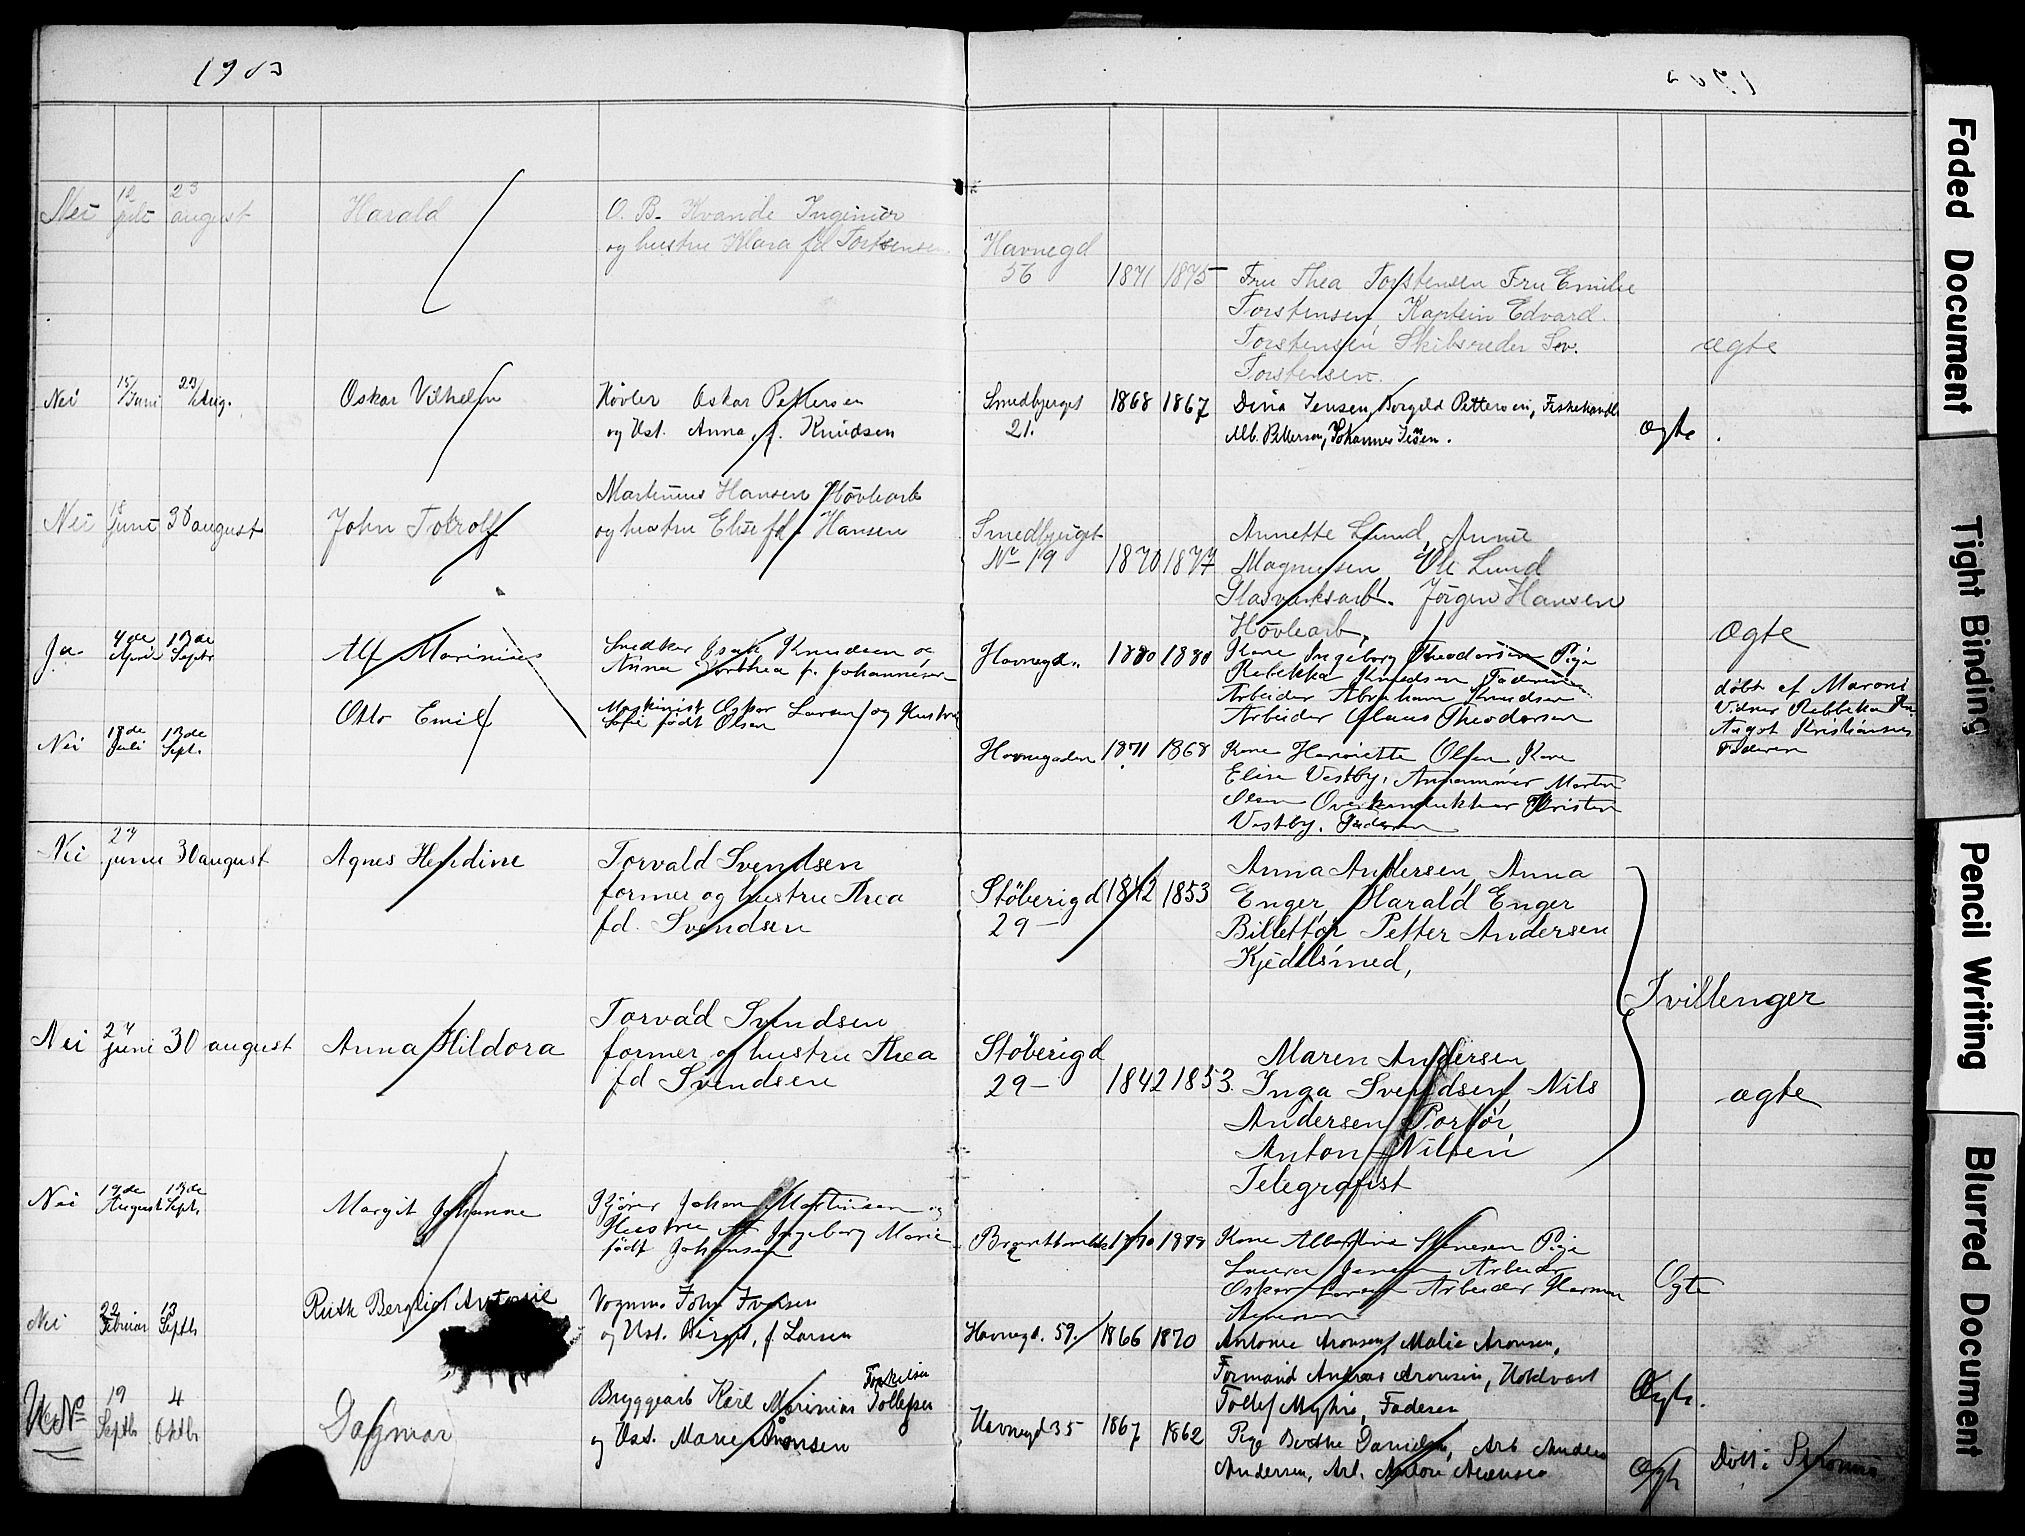 1903
Nei 12 juli 23 august Harald O. B. Kvande Ingeniör
og hustru Klara fd Torstensen
Havnegd
56 1871 1875 Fru Thea Torstensen Fru Emilie
Torstensen Kaptein Edvard
Torstensen Skibsreder Sev.
Torstensen.
ægte
Nei 15/Juni 23/Aug. Oskar Vilhelm Høvler Oskar Pettersen
og Ust. Anna f. Knudsen
Smedbjerget
21. 1868 1867 Dina Jensen, Borgild Pettersen, Fiskehandl
Alb. Pettersen, Johannes Jensen.
Ægte.
Nei 18 juni 30 august John Totrolf Martinius Hansen Høvlearb
og hustru Elise fd. Hansen
Smedbjerget
No 19 1870 1877 Annette Lund, Anne
Magnussen, Ole Lund
Glasværksarb. Jörgen Hansen
Høvlearb,
Ægte
Ja 4de April 13de Septr Alf Marinius Snedker Isak Knudsen og
Anna Dorthea f. Johannesen
Havnegd. 1880 1880 Kone Ingeborg Theodorsen Pige
Rebekka Knudsen Faderen
Arbeider Abraham Knudsen
Arbeider Claus Theodorsen
döbt af Maroni
Vidner Rebbeka
August Kristiansen
Faderen
Nei 18de Juli 13de Sept. Otto Emil Maskinist Oskar Larsen og Hustru
Sofie født Olsen
Havnegaden 1871 1868 Kone Henriette Olsen Kone
Elise Vestby, Morten
Olsen Overkonduktør Kristen
Vestby. Faderen
Nei 27 juni 30 august Agnes Hendine Torvald Svendsen
former og hustru Thea
fd. Svendsen
Støberigd
29 - 1842 1853 Anna Andersen, Anna
Enger, Harald Enger
Billettör Petter Andersen
Kjedelsmed,
Tvillenger
Nei 27 juni 30 august Anna Hildora Torvald Svendsen
former og hustru Thea
fd Svendsen
Støberigd
29 - 1842 1853 Maren Andersen
Inga Svendsen, Nils
Andersen Portör,
Anton Nilsen
Telegrafist
ægte
Nei 19de August 13de Septr Margit Johanne Kjører Johan Martinsen og
Hustru Ingeborg Marie
født Johansen
Kone Albertine Pige
Laura Jensen Arbeider
Oskar Larsen Arbeider Herman
Ægte
Nei 22 Februar 13 Septb Ruth Bergliot Antonie Vognm. John Iversen
og Ust. Birgit, f. Larsen
Havnegd. 59. 1866 1870 Antonie Aronsen, Malie Aronsen,
Formand Andreas Aronsen,
Tollef Myhre, Faderen
Ægte.
19 Septb 4 Oktbr Dagmar Bryggearb Karl Marinius Tollefsen
Torkelsen
og Ust. Marie Aronsen
Havnegd 35 1867 1862 Pige Berthe Danielsen, Arb Anders
Andersen, Arb. Aronsen
Ægte
Faded Document
Tight Binding
Pencil Writing
Blurred Document